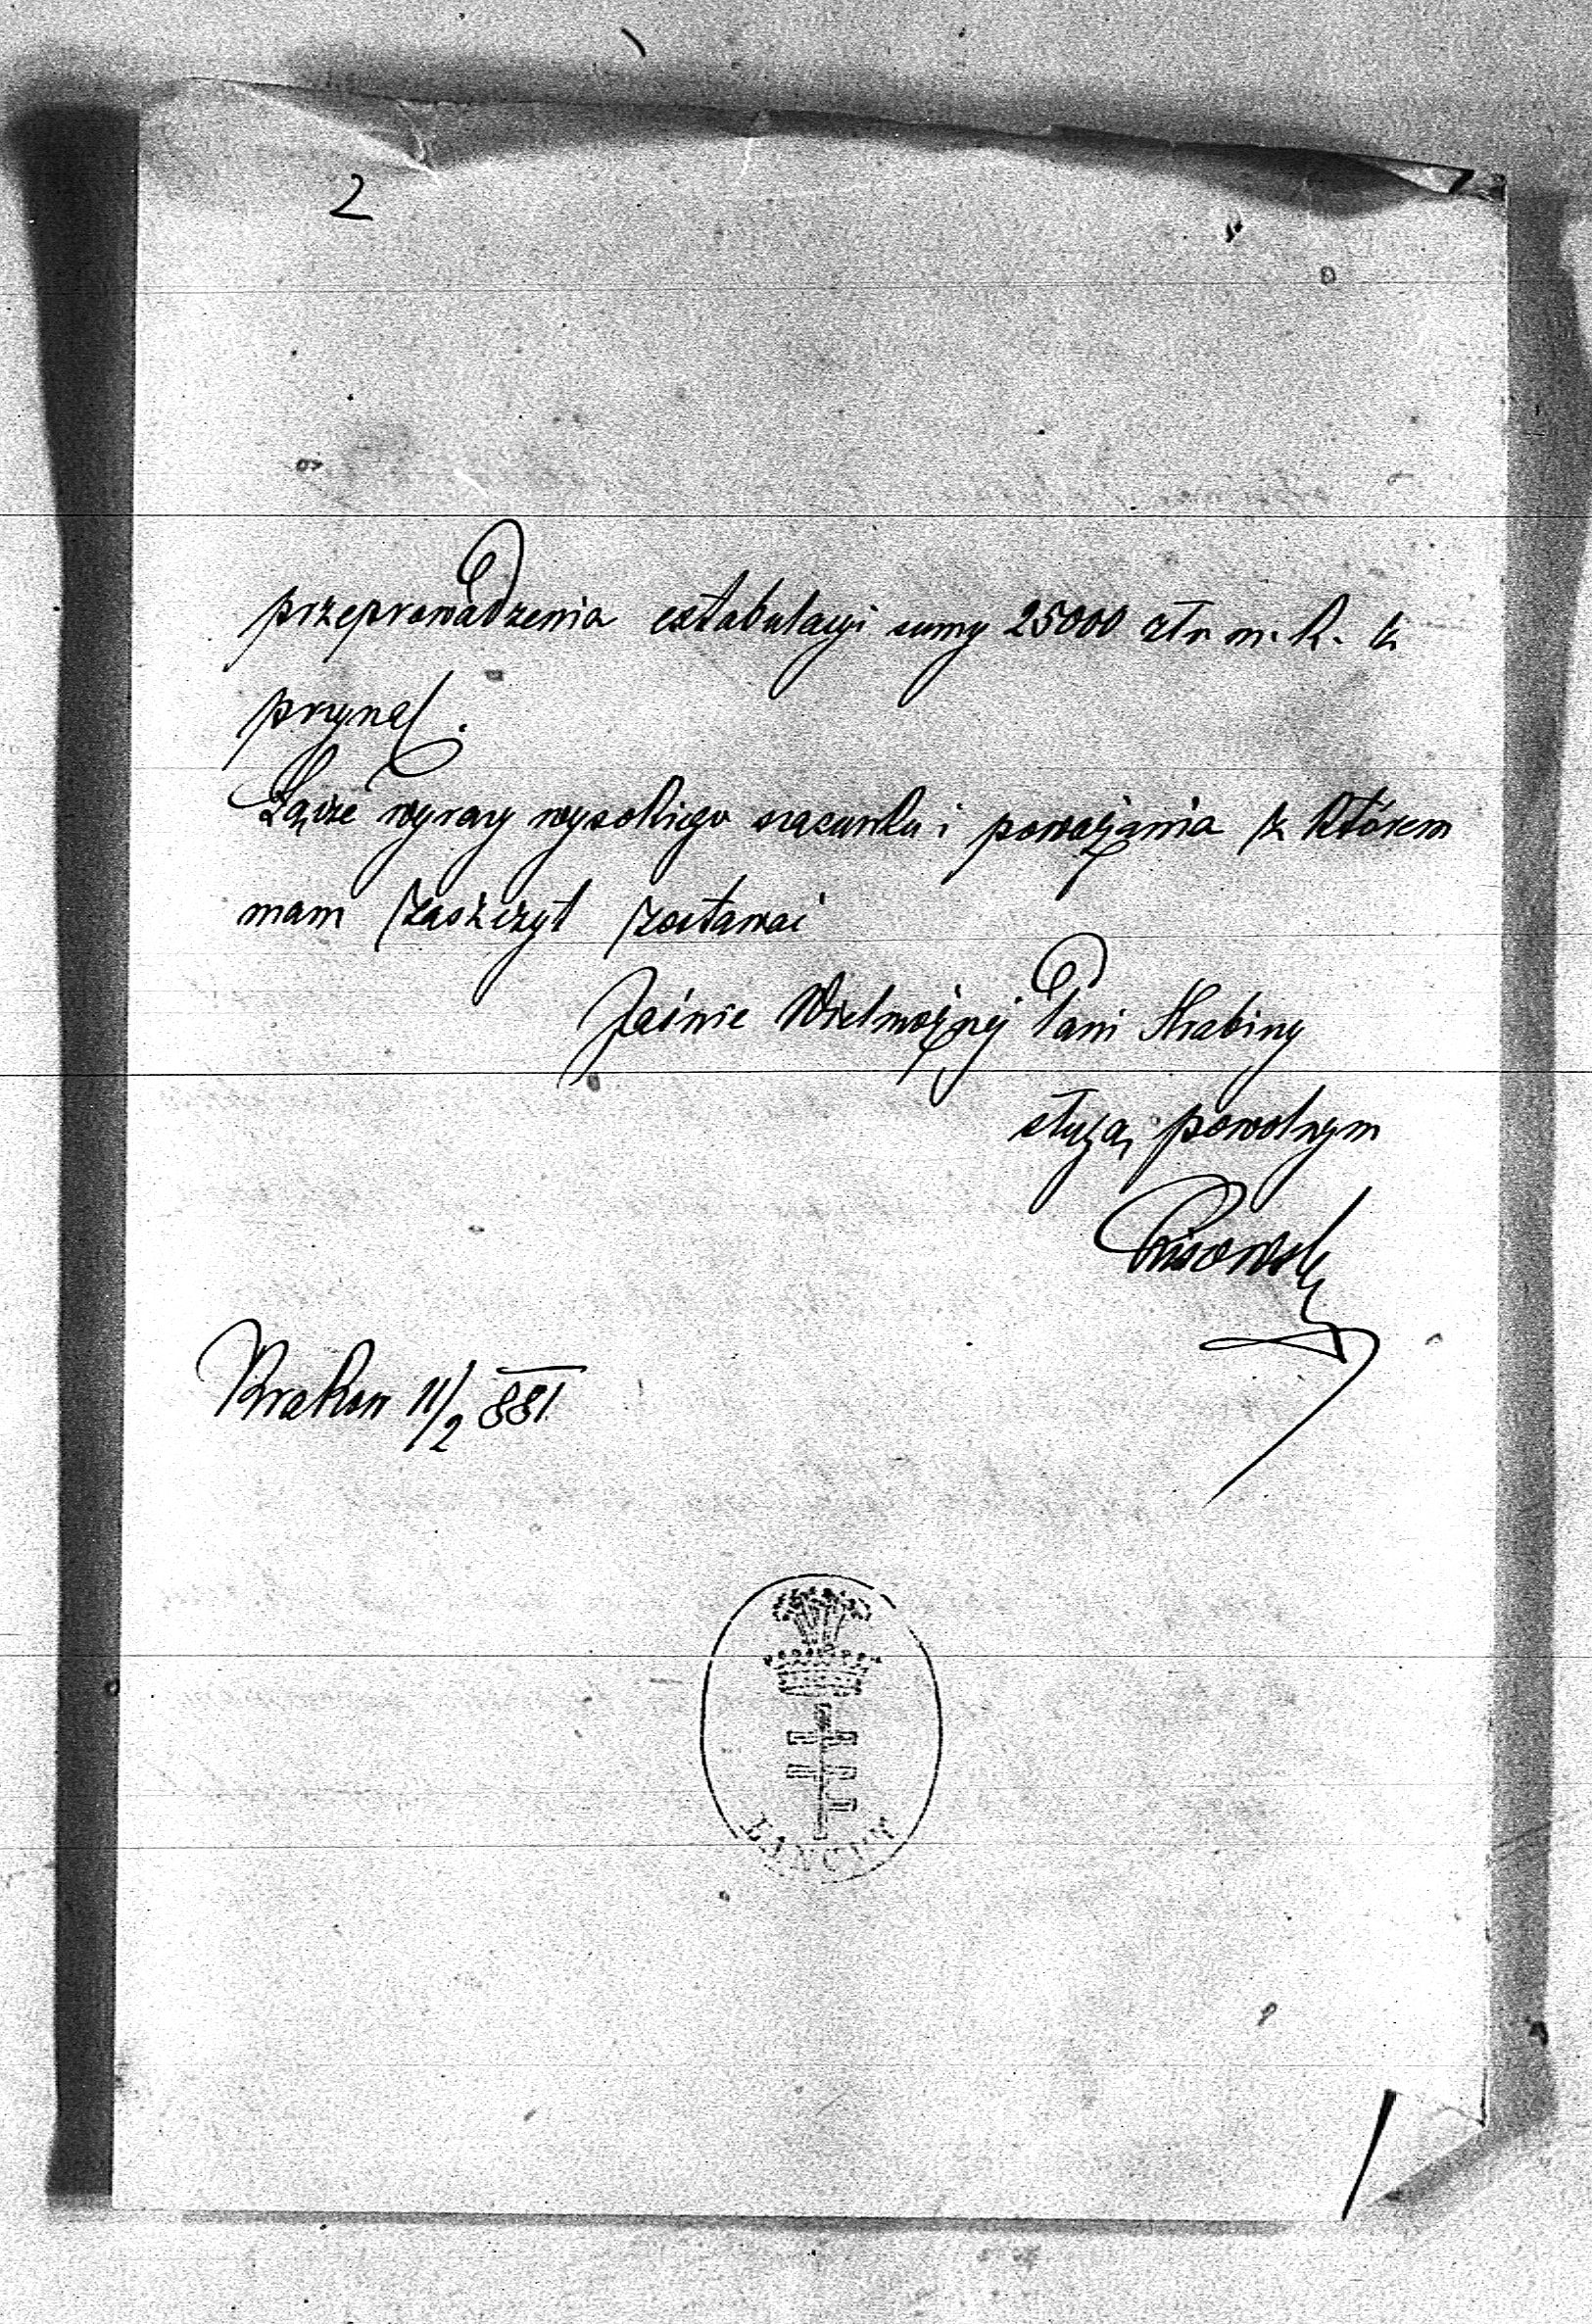 2
przeprowadzenia extabulacyi sumy 25000 złr m. k. z
przynal.
Łącze wyrazy wysokiego szacunku i poważania z którem
mam zaszczyt zostawać
Jaśnie Wielmożnej Pani Hrabiny
sługą powolnym
Kraków 11/2 881.
ŁAŃCUT